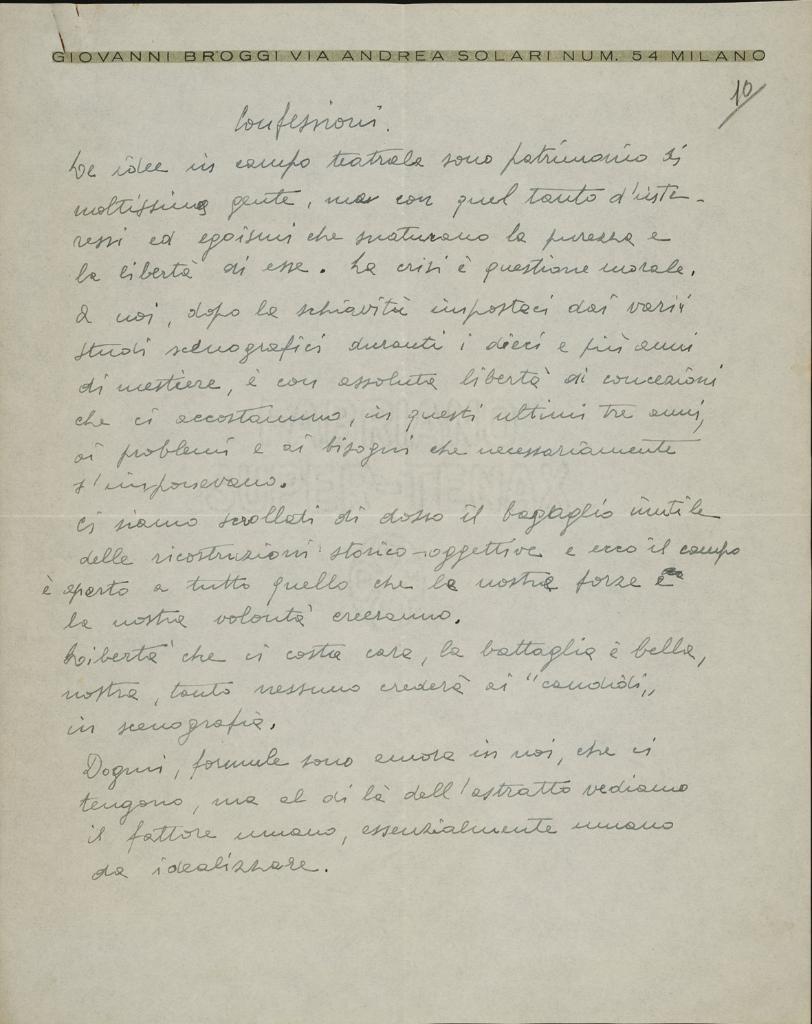 GIOVANNI BROGGI VIA ANDREA SOLARI NUM. 54 MILANO
10
Confessioni.
Le idee in campo teatrale sono patrimonio di
moltissima gente, ma con quel tanto d'inte-
ressi ed egoismi che snaturano la purezza e
la libertà di esse. La crisi è questione morale.
A noi, dopo la schiavitù impostaci dai varii
studi scenografici duranti i dieci e più anni
di mestiere, è con assoluta libertà di concezioni
che ci accostammo, in questi ultimi tre anni,
ai problemi e ai bisogni che necessariamente
s'imponevano.
Ci siamo scrollati di dosso il bagaglio inutile
delle ricostruzioni storico-oggettive e ecco il campo
è aperto a tutto quello che la nostra forza e
la nostra volontà creeranno.
Libertà che ci costa cara, la battaglia è bella,
nostra, tanto nessuno crederà ai "candidi„
in scenografia.
Dogmi, formule sono ancora in noi, che ci
tengono, ma al di là dell'astratto vediamo
il fattore umano, essenzialmente umano
da idealizzare.